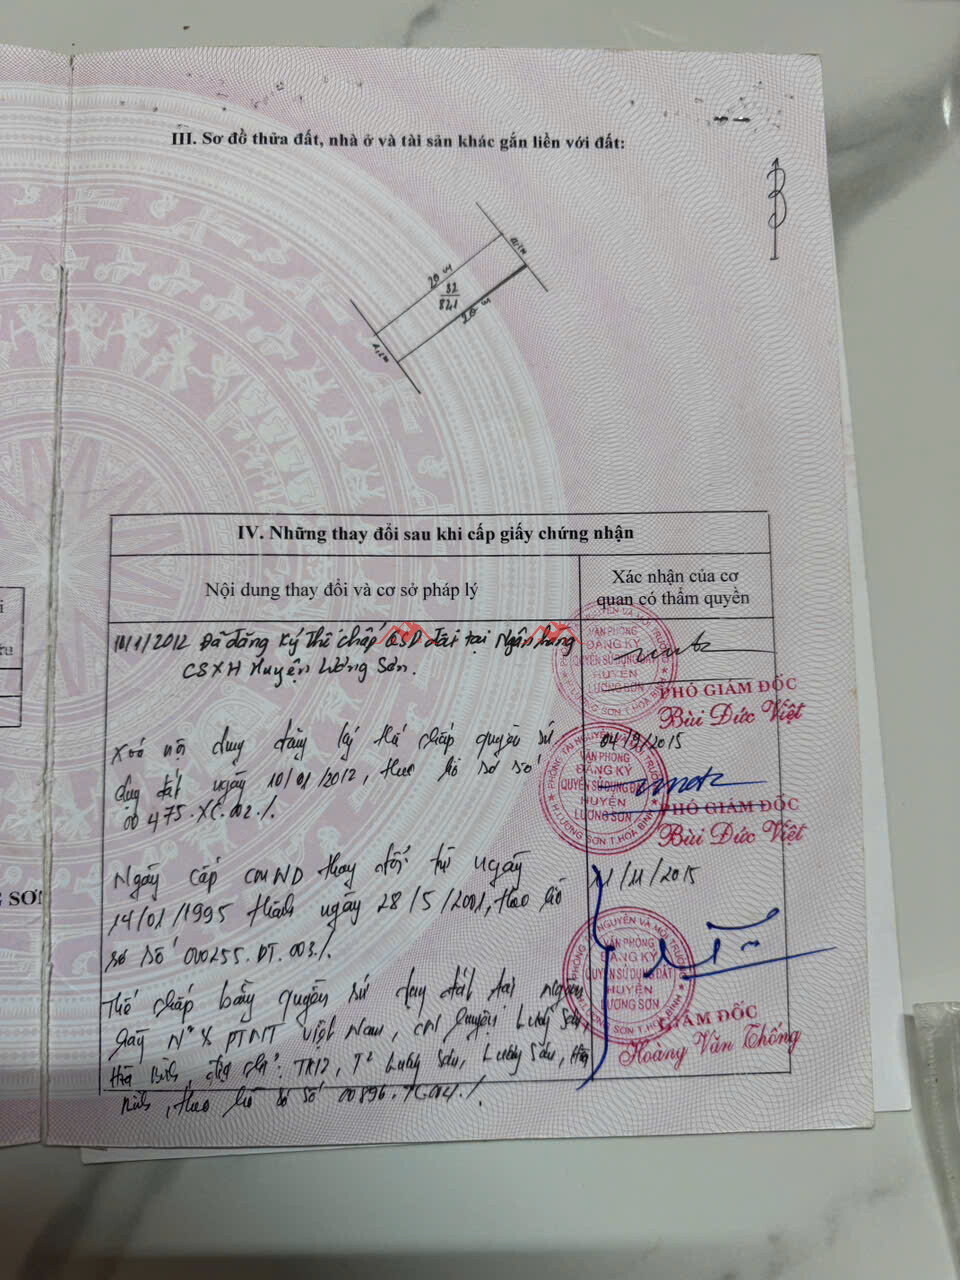 III. Sơ đồ thửa đất, nhà ở và tài sản khác gắn liền với đất:
B
20 m
82
821
20 m
IV. Những thay đổi sau khi cấp giấy chứng nhận
Nội dung thay đổi và cơ sở pháp lý
Xác nhận của cơ
quan có thẩm quyền
10/1/2012 Đã đăng ký thế chấp QSD đất tại Ngân hàng
CSXH Huyện Lương Sơn.
VĂN PHÒNG
ĐĂNG KÝ
QUYỀN SỬ DỤNG ĐẤT
HUYỆN
LƯƠNG SƠN
PHÓ GIÁM ĐỐC
Bùi Đức Việt
Xoá nội dung đăng ký thế chấp quyền sử
dụng đất ngày 10/01/2012, theo hồ sơ số
00475.XC.002./.
04/9/2015
PHÒNG TÀI NGUYÊN VÀ MÔI TRƯỜNG
H.LƯƠNG SƠN T.HOÀ BÌNH
VĂN PHÒNG
ĐĂNG KÝ
QUYỀN SỬ DỤNG ĐẤT
HUYỆN
LƯƠNG SƠN
PHÓ GIÁM ĐỐC
Bùi Đức Việt
Ngày cấp CMND thay đổi từ ngày
14/01/1995 thành ngày 28/5/2001, theo hồ
sơ số 000255.ĐT.003./.
11/11/2015
VĂN PHÒNG
ĐĂNG KÝ
QUYỀN SỬ DỤNG ĐẤT
HUYỆN
LƯƠNG SƠN
GIÁM ĐỐC
Hoàng Văn Thống
Thế chấp bằng quyền sử dụng đất tại Ngân
hàng No & PTNT Việt Nam, CN huyện Lương Sơn,
Hòa Bình, địa chỉ: TK12, T² Lương Sơn, Lương Sơn, Hòa
Bình, theo hồ sơ số 00896.TC.004./.